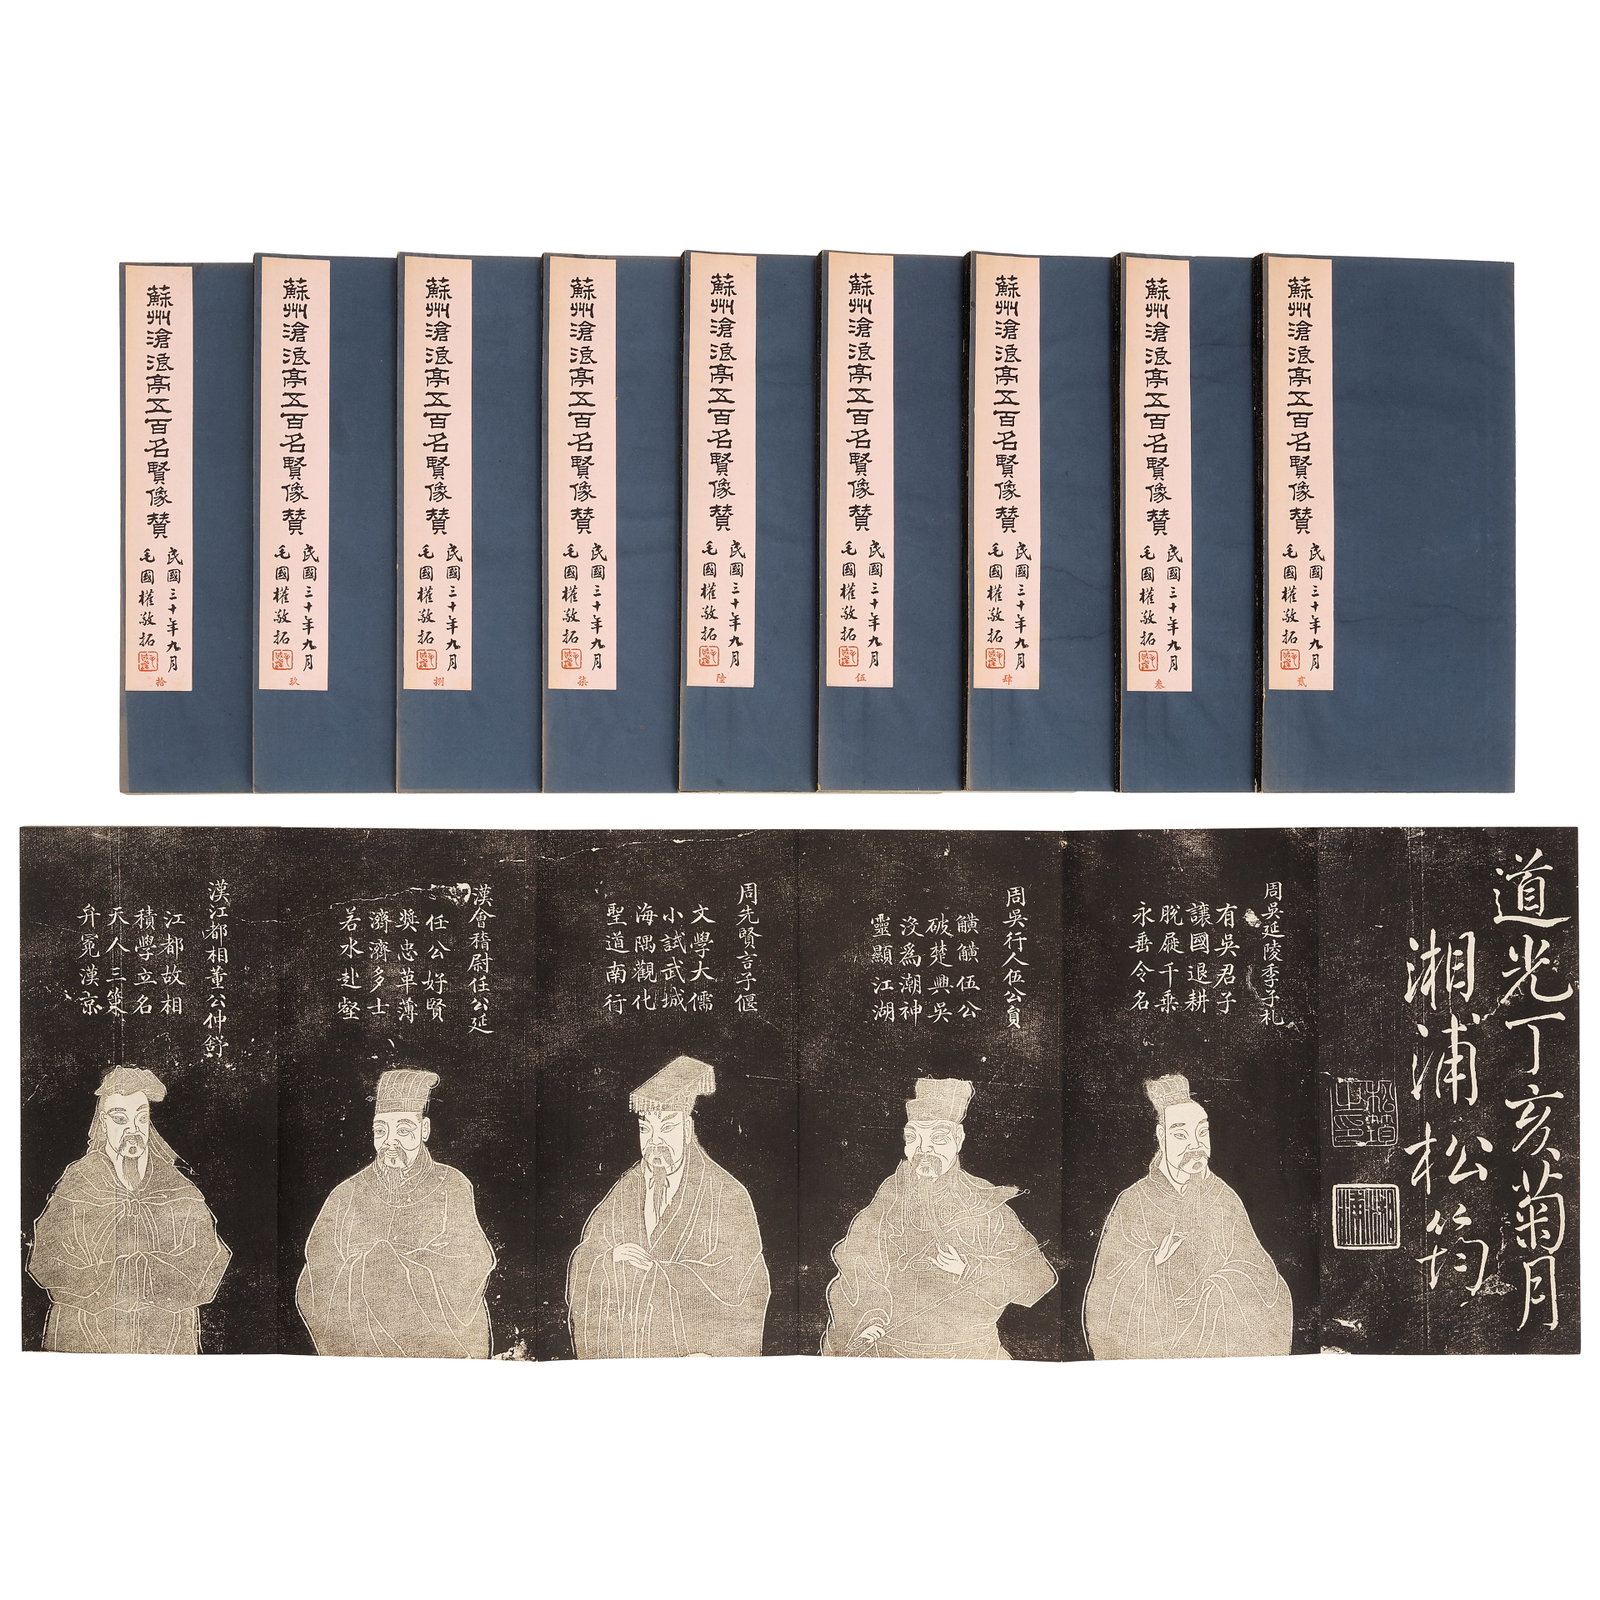 蘇州滄浪亭五百名賢像贊
民國三十年九月
毛國權敬拓
貳
蘇州滄浪亭五百名賢像贊
民國三十年九月
毛國權敬拓
叁
蘇州滄浪亭五百名賢像贊
民國三十年九月
毛國權敬拓
肆
蘇州滄浪亭五百名賢像贊
民國三十年九月
毛國權敬拓
伍
蘇州滄浪亭五百名賢像贊
民國三十年九月
毛國權敬拓
陸
蘇州滄浪亭五百名賢像贊
民國三十年九月
毛國權敬拓
柒
蘇州滄浪亭五百名賢像贊
民國三十年九月
毛國權敬拓
捌
蘇州滄浪亭五百名賢像贊
民國三十年九月
毛國權敬拓
玖
蘇州滄浪亭五百名賢像贊
民國三十年九月
毛國權敬拓
拾
道光丁亥菊月
湘浦松筠
松筠之印
湘浦
周吳延陵季子札
有吳君子
讓國退耕
脫屣千乘
永垂令名
周吳行人伍公員
觵觵伍公
破楚興吳
沒為潮神
靈顯江湖
周先賢言子偃
文學大儒
小試武城
海隅觀化
聖道南行
漢會稽尉任公延
任公好賢
獎忠革薄
濟濟多士
若水赴壑
漢江都相董公仲舒
江都故相
積學立名
天人三策
弁冕漢京